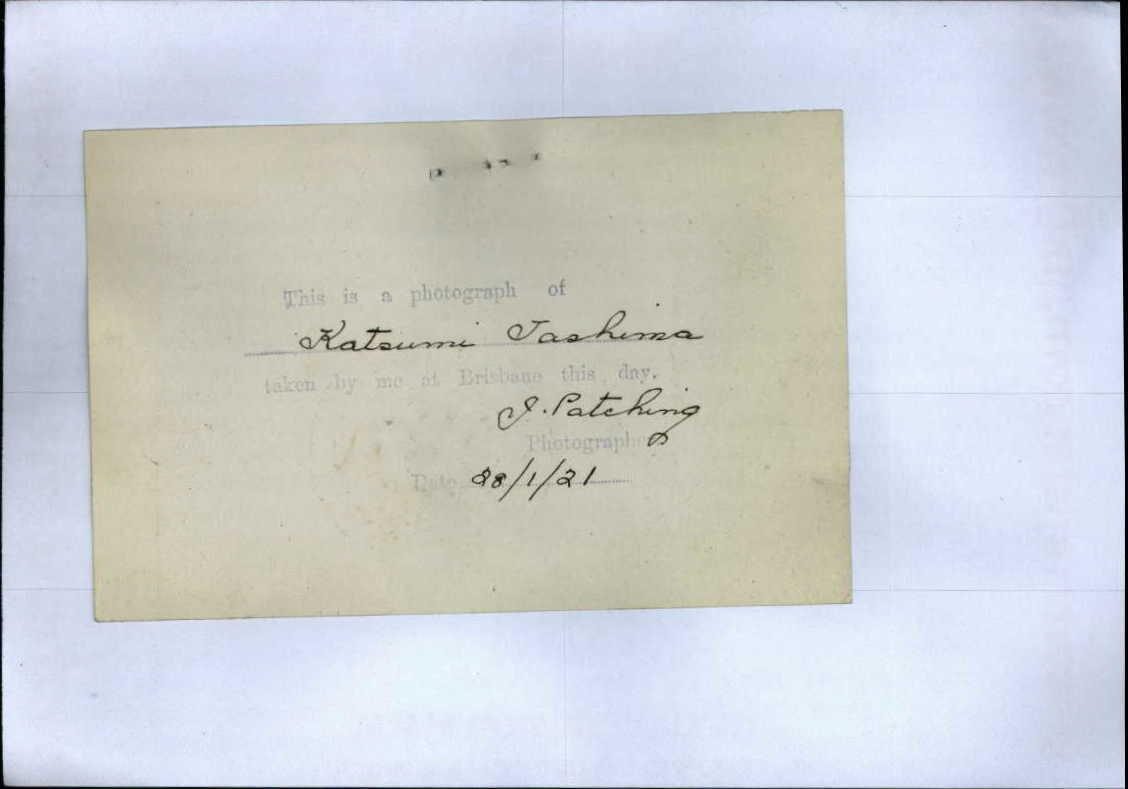 This is a photograph of
Katsumi Tashima
taken by me at Brisbane this day.
J. Patching
Photographer
Date 28/1/21